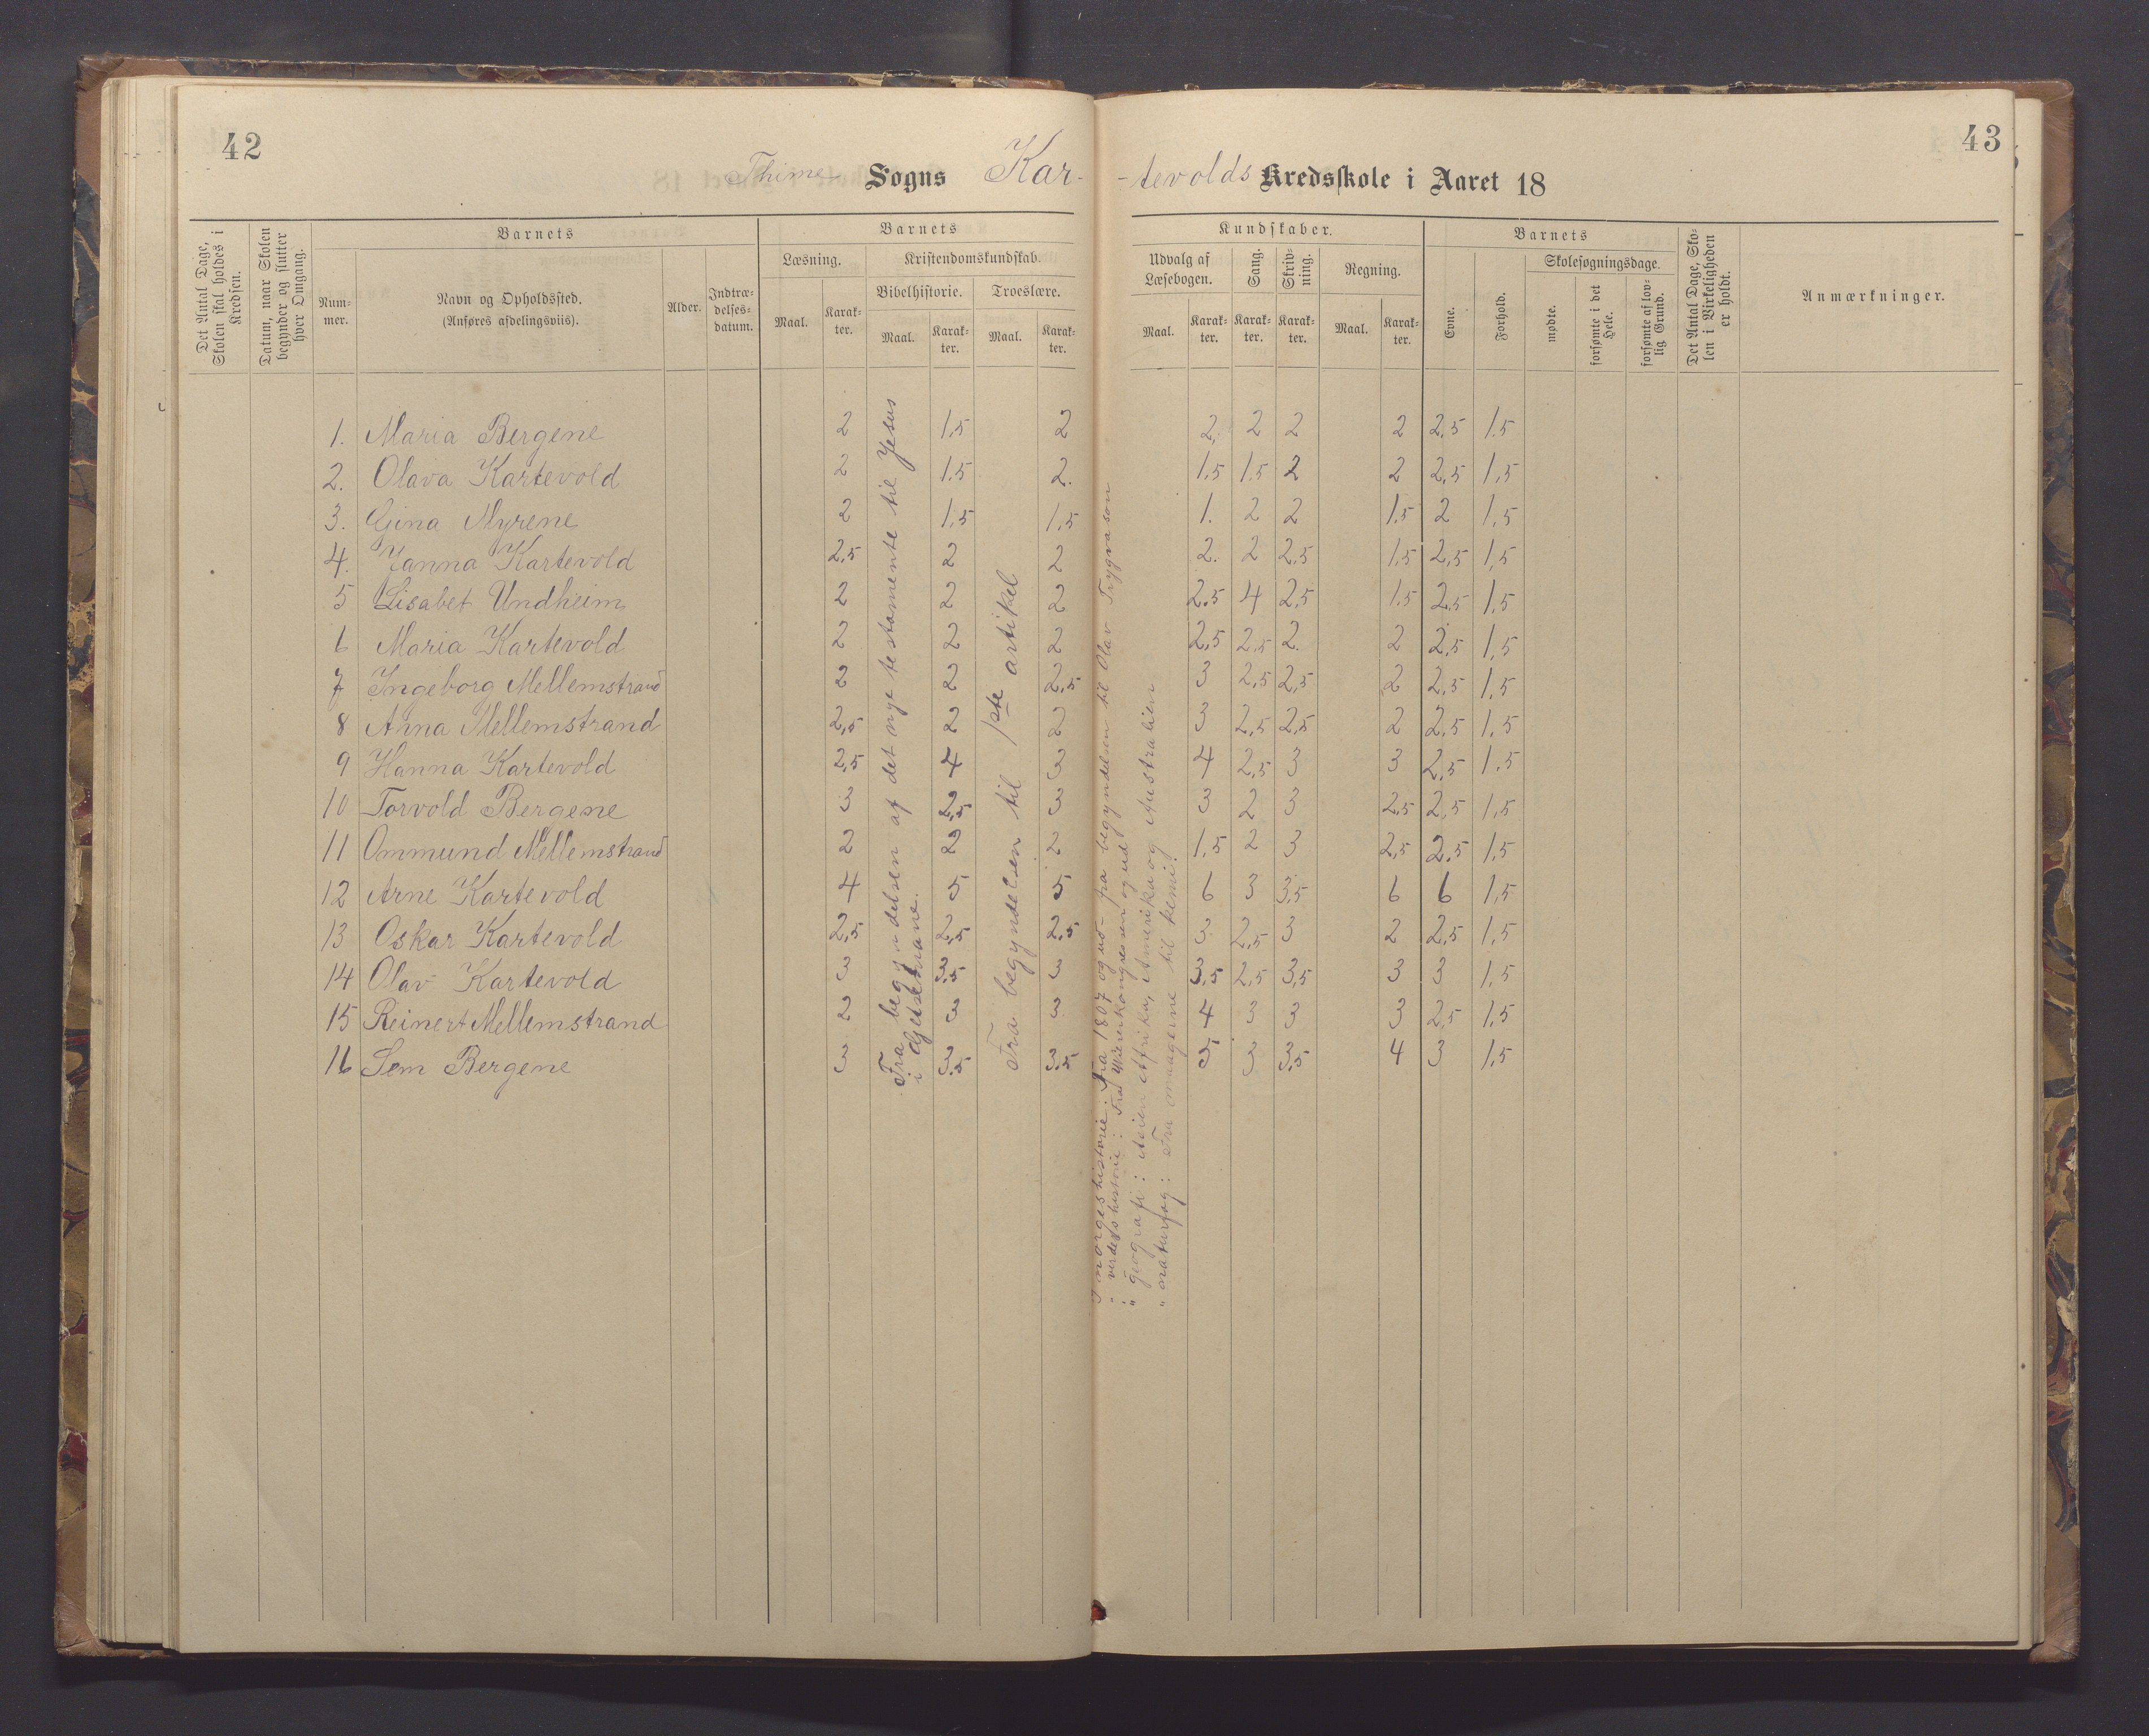 42
Thime Sogns Kar-
Det Antal Dage, Skolen skal holdes i Kredsen.
Datum, naar Skolen begynder og slutter hver Omgang.
Barnets
Num-mer.
Navn og Opholdssted.
(Anføres afdelingsviis).
Alder.
Indtræ-delses-datum.
Barnets
Læsning.
Kristendomskundskab.
Bibelhistorie. Troeslære.
Maal. Karak-ter. Maal. Karak-ter. Maal. Karak-ter.
1. Maria Bergene 2 1,5 2
2. Olava Kartevold 2 1.5 2.
3. Gina Myrene 2 1,5 1,5
4. Hanna Kartevold 2,5 2 2
5 Lisabet Undheim 2 2 2
6 Maria Kartevold 2 2 2
7 Ingeborg Mellemstrand 2 2 2,5
8 Anna Mellemstrand 2,5 2 2
9 Hanna Kartevold 2,5 4 3
10 Torvold Bergene 3 2,5 3
11 Ommund Mellemstrand 2 2 2
12 Arne Kartevold 4 5 5
13 Oskar Kartevold 2,5 2,5 2,5
14 Olav Kartevold 3 3,5 3
15 Reinert Mellemstrand 2 3 3
16 Sem Bergene 3 3,5 3,5
Fra begyndelsen af det nye testamente til Jesus
i Getsemane.
Fra begyndelsen til 1ste artikel
43
-tevolds Kredsskole i Aaret 18
Kundskaber.
Udvalg af Læsebogen.
Sang.
Skriv-ning.
Regning.
Maal. Karak-ter. Karak-ter. Karak-ter. Maal. Karak-ter.
Barnets
Evne.
Forhold.
Skolesøgningsdage.
mødte.
forsømte i det Hele.
forsømte af lov-lig Grund.
Det Antal Dage, Sko-len i Virkeligheden er holdt.
Anmærkninger.
2. 2 2 2 2,5 1.5
1,5 1.5 2 2 2,5 1,5
1. 2 2 1,5 2 1,5
2. 2 2,5 1,5 2,5 1,5
2.5 4 2,5 1.5 2,5 1,5
2,5 2,5 2. 2 2,5 1,5
3 2,5 2,5 2 2,5 1,5
3 2,5 2,5 2 2,5 1,5
4 2,5 3 3 2,5 1.5
3 2 3 2,5 2,5 1,5
1,5 2 3 2,5 2.5 1,5
6 3 3,5 6 6 1,5
3 2,5 3 2 2,5 1,5
3,5 2,5 3,5 3 3 1,5
4 3 3 3 2,5 1,5
5 3 3,5 4 3 1,5
I norgeshistorie: fra 1807 og ud - fra begyndelsen til Olav Trygvason
- verdenshistorie: Fra Wienerkongressen og ud
" geografi: Asien Afrika, Amerika og Australien
" naturfag: Fra til kemi.